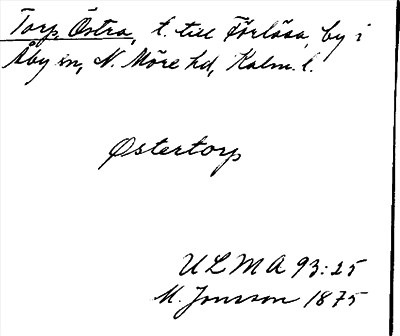 Torp, Östra, t. till Förlösa, by i
Åby sn, N. Möre hd, Kalm. l.
Østertorp
ULMA 93:25
M. Jonsson 1875